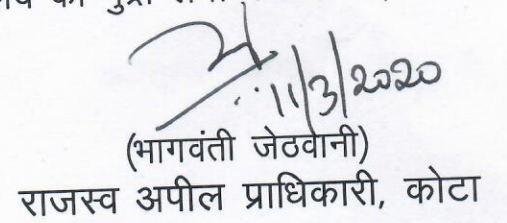 11/3/2020
(भागवंती जेठवानी)
राजस्व अपील प्राधिकारी, कोटा